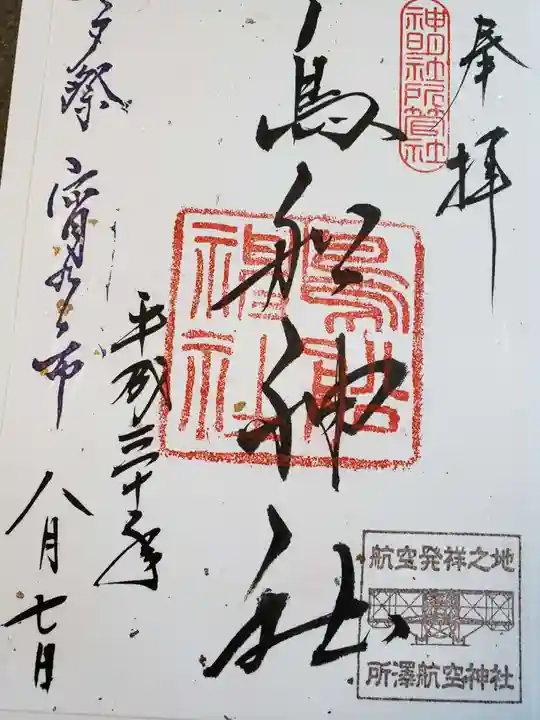 奉拝
神明社所管社
鳥船神社
鳥船神社
平成三十年
八月七日
夕祭 宵乃市
航空発祥之地
所澤航空神社